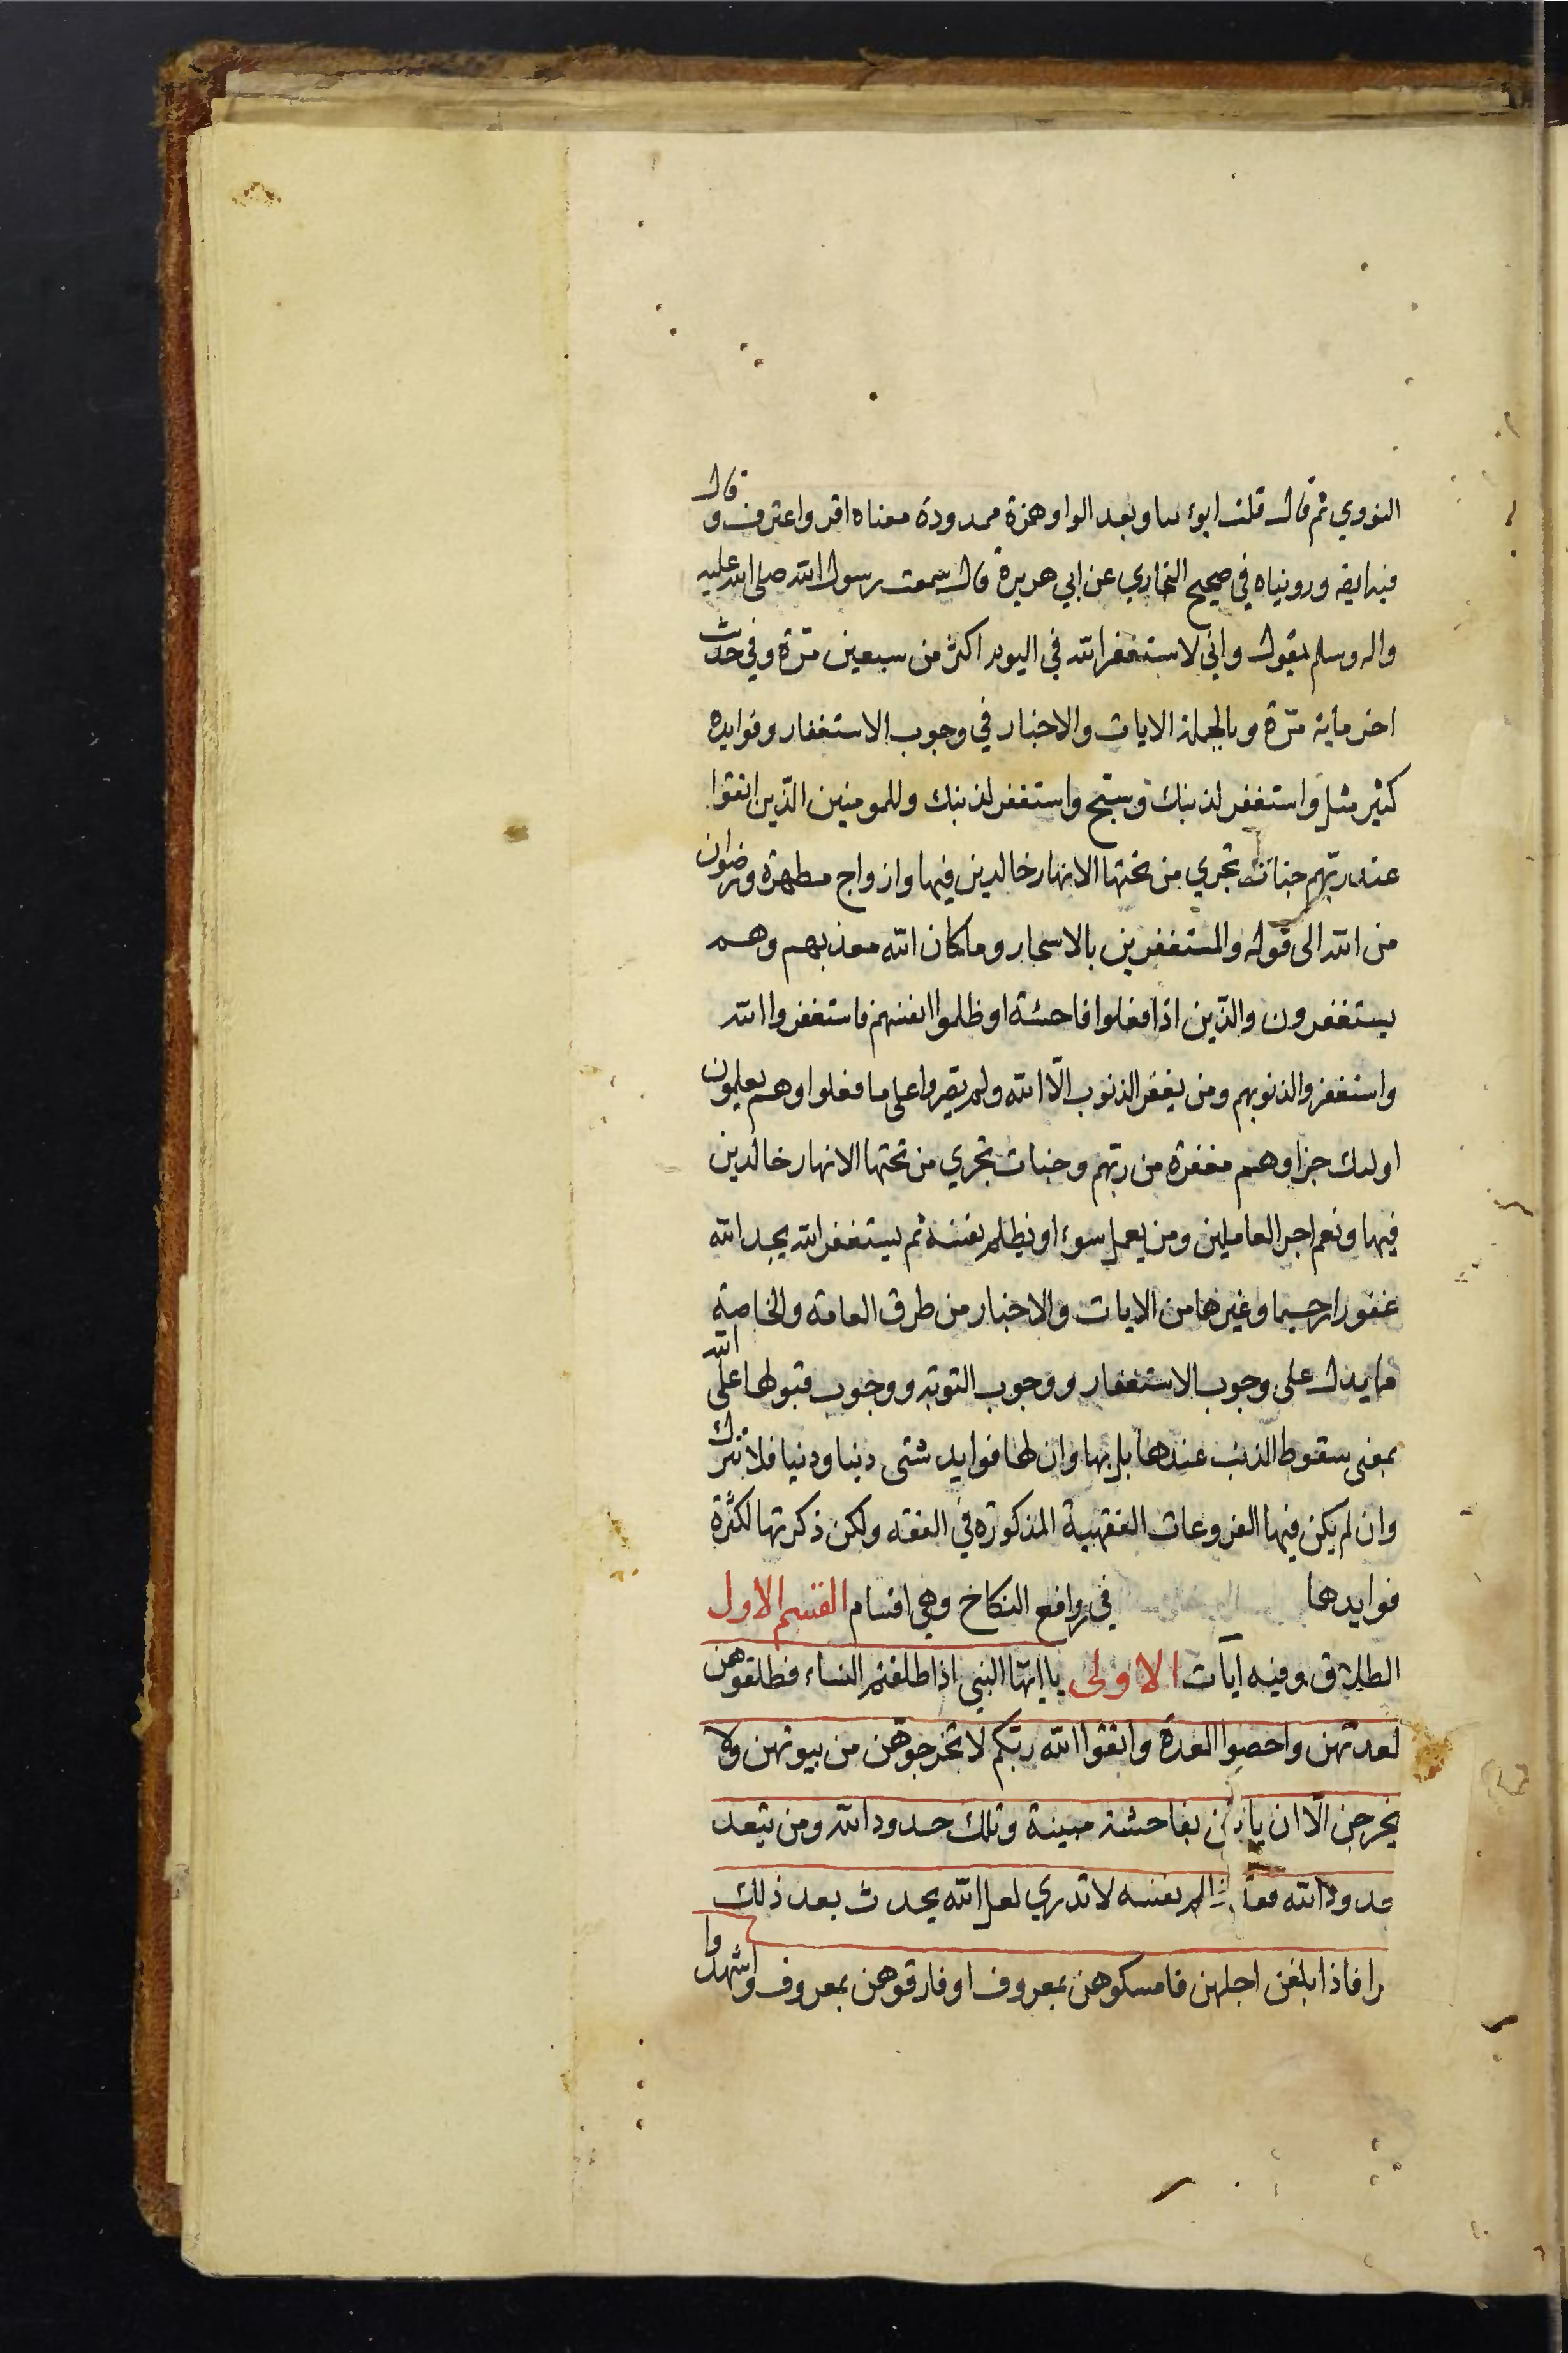 النووي ثم قال قلت ابوء بباء وبعد الواو همزة ممدودة معناه اقر واعترف وقال
فيه ايضه ورويناه في صحيح البخاري عن ابي هريرة قال سمعت رسول الله صلى الله عليه
واله وسلم يقول واني لاستغفر الله في اليوم اكثر من سبعين مرّة وفي حديث
اخر ماية مرّة وبالجملة الايات والاخبار في وجوب الاستغفار وفوايده
كثير مثل واستغفر لذنبك وسبّح واستغفر لذنبك وللمومنين الّذين اتقوا
عند ربّهم جنات تجري من تحتها الانهار خالدين فيها وازواج مطهرة ورضوان
من الله الى قوله والمستغفرين بالاسحار وما كان الله معذبهم وهم
يستغفرون والّذين اذا فعلوا فاحشة او ظلموا انفسهم فاستغفروا الله
واستغفروا لذنوبهم ومن يغفر الذنوب الّا الله ولم يصروا على ما فعلوا وهم يعلمون
اولئك جزاوهم مغفرة من ربّهم وجنات تجري من تحتها الانهار خالدين
فيها ونعم اجر العاملين ومن يعمل سوء او يظلم نفسه ثم يستغفر الله يجد الله
غفورا رحيما وغيرها من الايات والاخبار من طرق العامة والخاصة
ما يدل على وجوب الاستغفار ووجوب التوبة ووجوب قبولها على الله
بمعنى سقوط الذنب عندها بل بها وان لها فوايد شتى دينا ودنيا فلا تترك
وان لم يكن فيها الفروعات الفقهية المذكورة في الفقه ولكن ذكرتها لكثرة
فوايدها في روافع النكاح وهي اقسام القسم الاول
الطلاق وفيه ايآت الاولى يا ايّها النبي اذا طلقتم النساء فطلقوهن
لعدتهن واحصوا العدة واتقوا الله ربّكم لا تخرجوهن من بيوتهن ولا
يخرجن الّا ان ياتين بفاحشة مبينة وتلك حدود الله ومن يتعد
حدود الله فقد ظلم نفسه لا تدري لعل الله يحدث بعد ذلك
مرا فاذا بلغن اجلهن فامسكوهن بمعروف او فارقوهن بمعروف واشهدوا